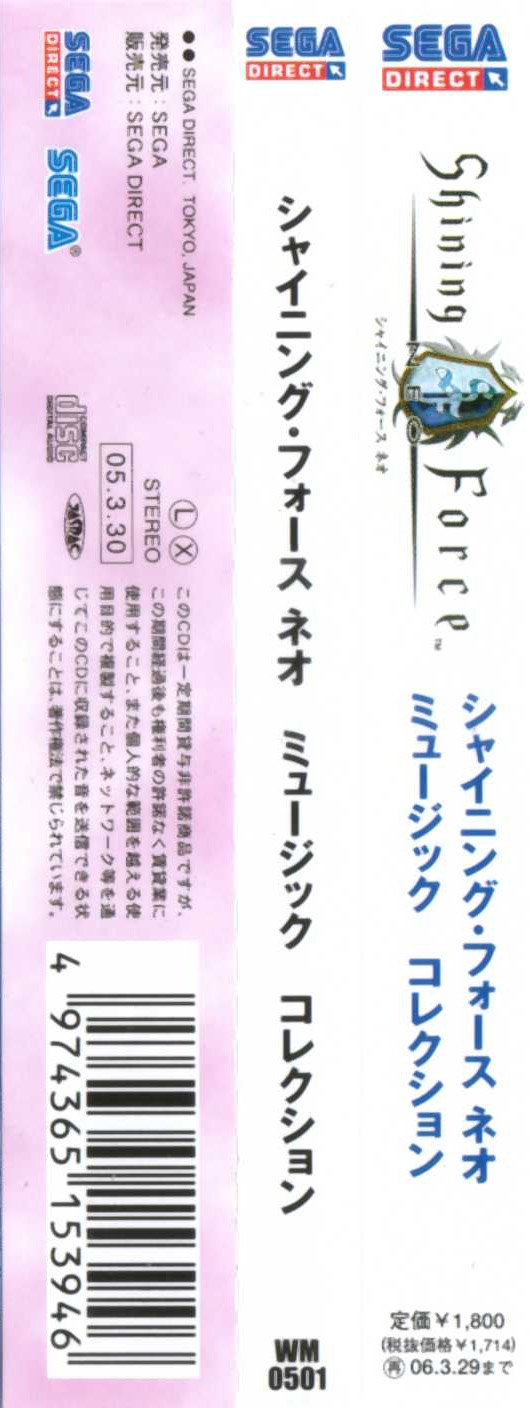 SEGA
DIRECT
Shining Force™
NEO
シャイニング・フォース ネオ
シャイニング・フォース ネオ
ミュージック コレクション
定価￥1,800
(税抜価格￥1,714)
再 06.3.29まで
SEGA
DIRECT
シャイニング・フォース ネオ ミュージック コレクション
WM
0501
●● SEGA DIRECT. TOKYO, JAPAN
発売元：SEGA
販売元：SEGA DIRECT
SEGA
DIRECT
SEGA®
Ⓛ Ⓧ
STEREO
05.3.30
COMPACT
disc
DIGITAL AUDIO
JASRAC
このCDは一定期間貸与非許諾商品ですが、
この期間経過後も権利者の許諾なく賃貸業に
使用すること、また個人的な範囲を越える使
用目的で複製すること、ネットワーク等を通
じてこのCDに収録された音を送信できる状
態にすることは、著作権法で禁じられています。
4 974365 153946